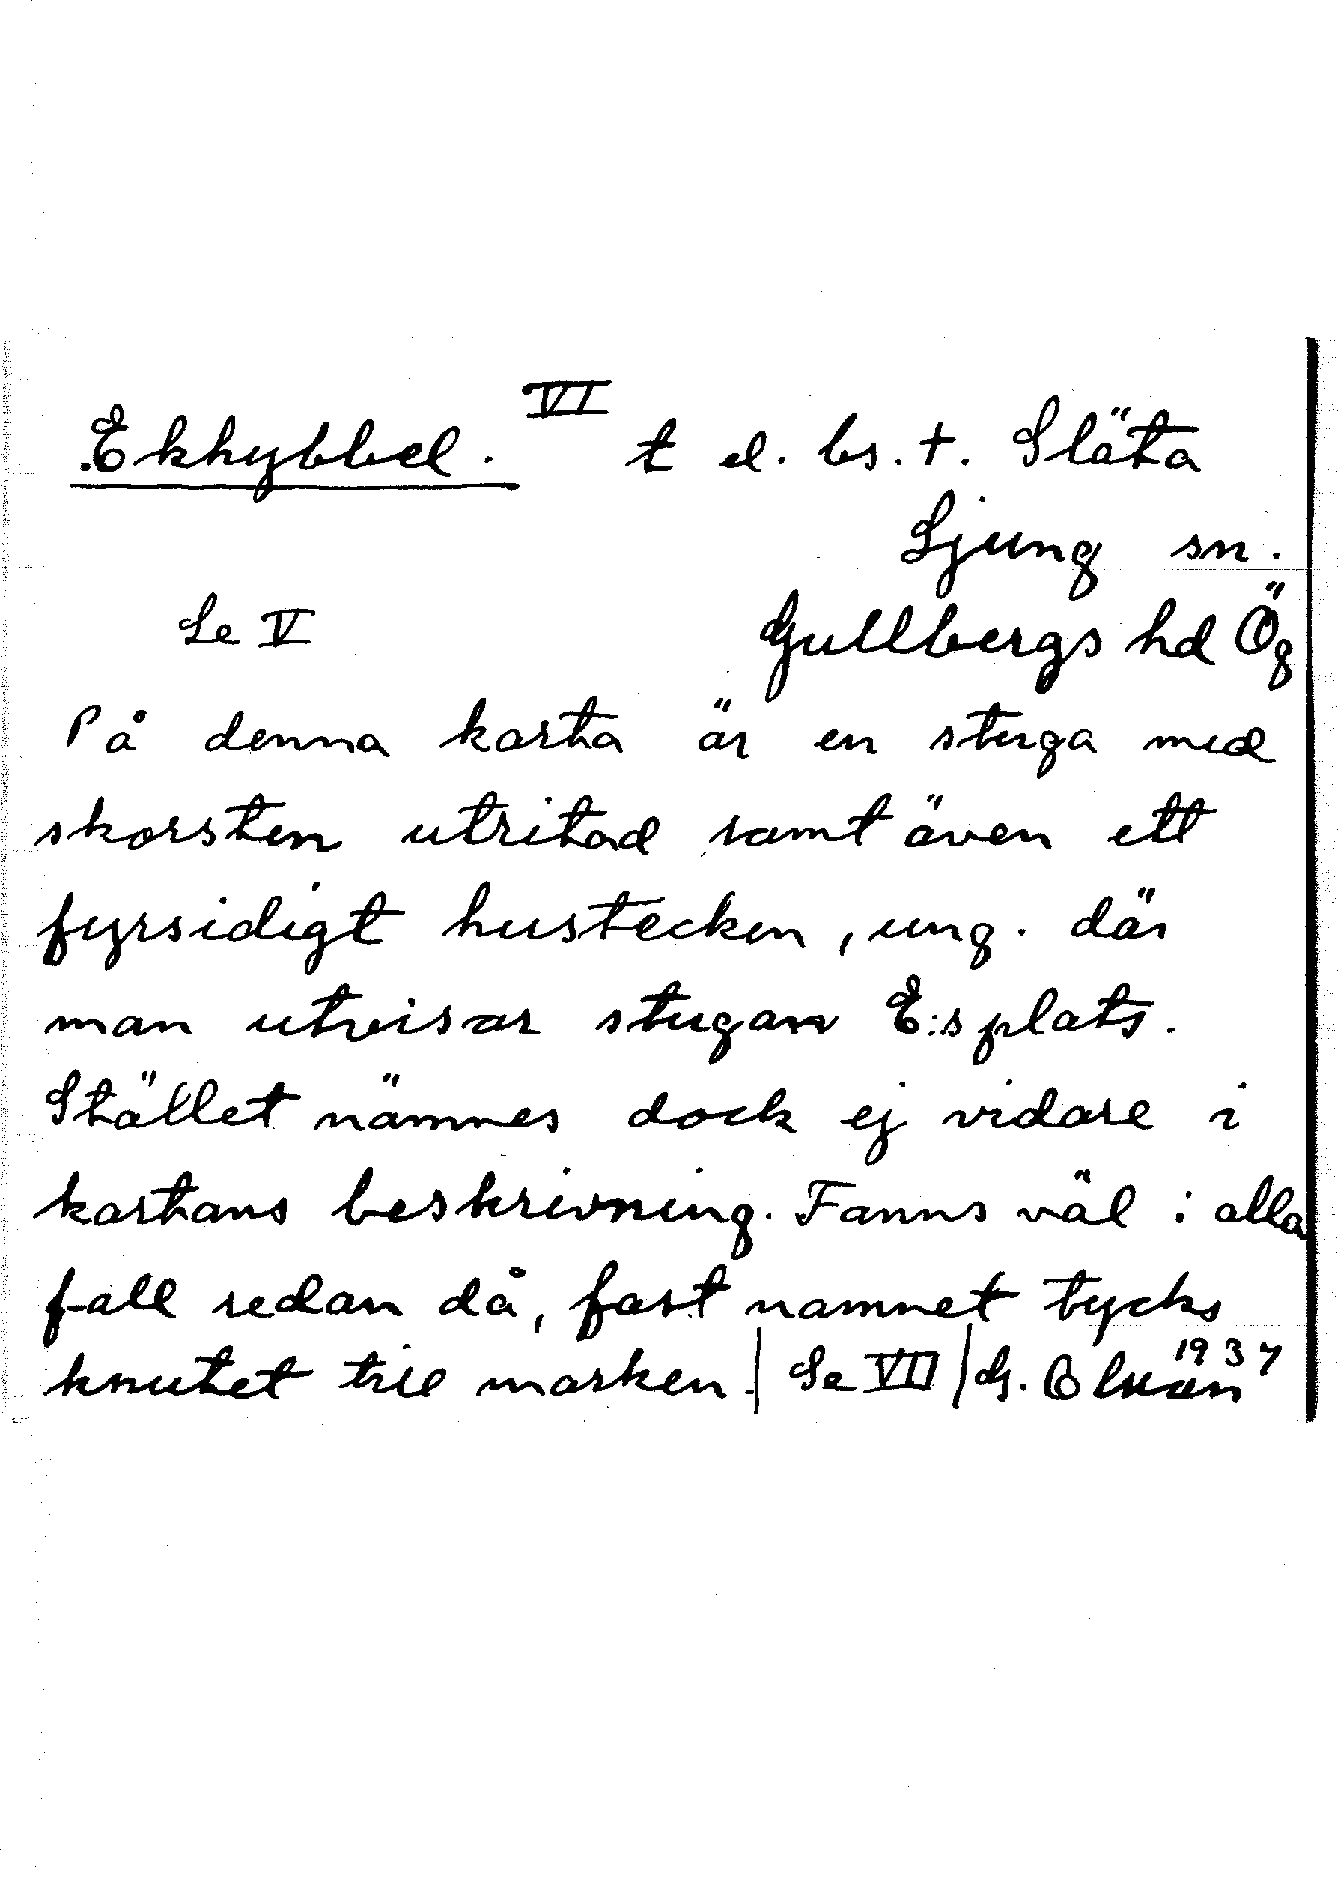 Ekhybbel. VI t el. bs. t. Släta
Ljung sn.
Se V Gullbergs hd Ög
På denna karta är en stuga med
skorsten utritad samt även ett
fyrsidigt hustecken, ung. där
man utvisar stugan E:s plats.
Stället nämnes dock ej vidare i
kartans beskrivning. Fanns väl i alla
fall redan då, fast namnet tycks
knutet till marken. | Se VII | G. 1937